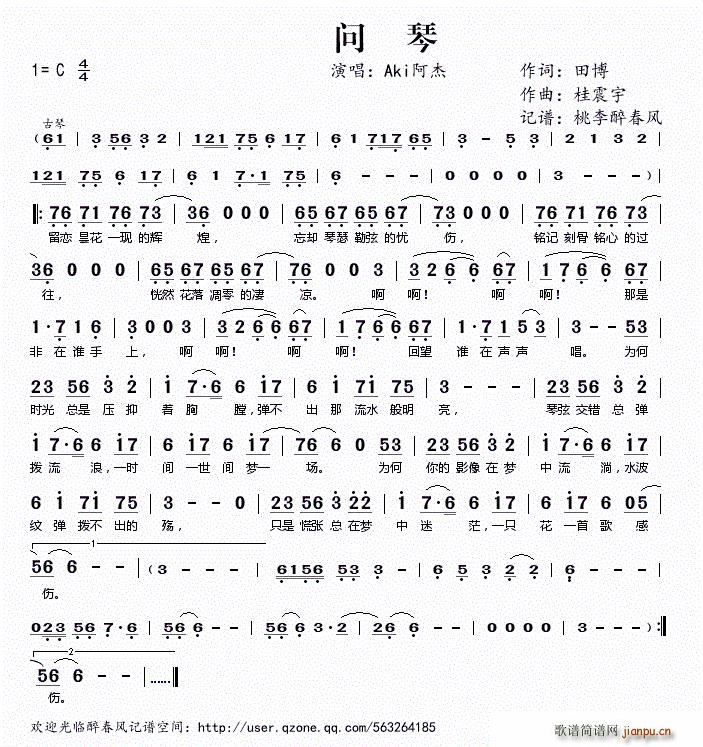 问 琴
1=C 4/4
演唱：Aki阿杰
作词：田博
作曲：桂震宇
记谱：桃李醉春风
古琴
( 61 | 3 56 3 2 | 121 75 6 17 | 6 1 717 65 | 3 - 5 3 | 2 1 3 2
121 75 6 17 | 6 1 7·1 75 | 6 - - - | 0 0 0 0 | 3 - - - ) |
‖: 76 71 76 73 | 36 0 0 0 | 65 67 65 67 | 73 0 0 0 | 76 71 76 73 |
留恋 昙花 一现 的辉 煌， 忘却 琴瑟 勒弦 的忧 伤， 铭记 刻骨 铭心 的过
36 0 0 0 | 65 67 65 67 | 76 0 0 3 | 3 26 6 67 | 1 76 6 67 |
往， 恍然 花落 凋零 的凄 凉。 啊 啊！ 啊 啊！ 那是
1·7 1 6 | 3 0 0 3 | 3 26 6 67 | 1 76 6 67 | 1·7 1 53 | 3 - - 53 |
非 在 谁 手 上， 啊 啊！ 啊 啊！ 回望 谁 在 声 声 唱。 为何
23 56 3 2 | 1 7·6 6 17 | 6 1 71 75 | 3 - - - | 23 56 3 2 |
时光 总是 压 抑 着 胸 膛，弹不 出 那 流水 般明 亮， 琴弦 交错 总 弹
1 7·6 6 17 | 6 17 6 17 | 76 6 0 53 | 23 56 3 2 | 1 7·6 6 17 |
拨 流 浪，一时 间 一世 间 梦一 场。 为何 你的 影像 在 梦 中 流 淌，水波
6 1 71 75 | 3 - - 0 | 23 56 3 22 | 1 7·6 6 17 | 6 17 6 05 |
纹 弹 拨不 出的 殇， 只是 慌张 总 在梦 中 迷 茫，一只 花 一首 歌 感
1
56 6 - - | (3 - - - | 6156 53 3 - | 6 53 2 2 | 6 - - - |
伤。
023 56 7·6 | 56 6 - - | 56 6 3·2 | 26 6 - - | 0 0 0 0 | 3 - - - ) :‖
2
56 6 - - |……‖
伤。
欢迎光临醉春风记谱空间：http://user.qzone.qq.com/563264185
歌谱简谱网
jianpu.cn